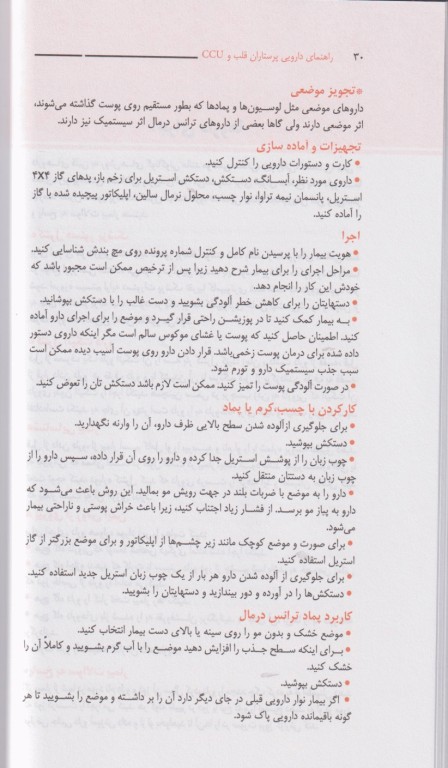 ۳۰ راهنمای دارویی پرستاران قلب و CCU
*تجویز موضعی
داروهای موضعی مثل لوسیون‌ها و پمادها که بطور مستقیم روی پوست گذاشته می‌شوند،
اثر موضعی دارند ولی گاها بعضی از داروهای ترانس درمال اثر سیستمیک نیز دارند.
تجهیزات و آماده سازی
• کارت و دستورات دارویی را کنترل کنید.
• داروی مورد نظر، آبسلانگ، دستکش، دستکش استریل برای زخم باز، پدهای گاز ۴X۴
استریل، پانسمان نیمه تراوا، نوار چسب، محلول نرمال سالین، اپلیکاتور پیچیده شده با گاز
را آماده کنید.
اجرا
• هویت بیمار را با پرسیدن نام کامل و کنترل شماره پرونده روی مچ بندش شناسایی کنید.
• مراحل اجرای را برای بیمار شرح دهید زیرا پس از ترخیص ممکن است مجبور باشد که
خودش این کار را انجام دهد.
• دستهایتان را برای کاهش خطر آلودگی بشویید و دست غالب را با دستکش بپوشانید.
• به بیمار کمک کنید تا در پوزیشن راحتی قرار گیرد و موضع را برای اجرای دارو آماده
کنید. اطمینان حاصل کنید که پوست یا غشای موکوس سالم است مگر اینکه داروی دستور
داده شده برای درمان پوست زخمی‌باشد. قرار دادن دارو روی پوست آسیب دیده ممکن است
سبب جذب سیستمیک دارو و تورم شود.
• در صورت آلودگی پوست را تمیز کنید. ممکن است لازم باشد دستکش تان را تعوض کنید.
کارکردن با چسب،کرم یا پماد
• برای جلوگیری ازآلوده شدن سطح بالایی ظرف دارو، آن را وارنه نگهدارید.
• دستکش بپوشید.
• چوب زبان را از پوشش استریل جدا کرده و دارو را روی آن قرار داده، سپس دارو را از
چوب زبان به دستتان منتقل کنید.
• دارو را به موضع با ضربات بلند در جهت رویش مو بمالید. این روش باعث می‌شود که
دارو به پیاز مو برسد. از فشار زیاد اجتناب کنید، زیرا باعث خراش پوستی و ناراحتی بیمار
می‌شود.
• برای صورت و موضع کوچک مانند زیر چشم‌ها از اپلیکاتور و برای موضع بزرگتر از گاز
استریل استفاده کنید.
• برای جلوگیری از آلوده شدن دارو هر بار از یک چوب زبان استریل جدید استفاده کنید.
• دستکش‌ها را در آورده و دور بیندازید و دستهایتان را بشویید.
کاربرد پماد ترانس درمال
• موضع خشک و بدون مو را روی سینه یا بالای دست بیمار انتخاب کنید.
• برای اینکه سطح جذب را افزایش دهید موضع را با آب گرم بشویید و کاملاً آن را
خشک کنید.
• دستکش بپوشید.
• اگر بیمار نوار دارویی قبلی در جای دیگر دارد آن را بر داشته و موضع را بشویید تا هر
گونه باقیمانده دارویی پاک شود.